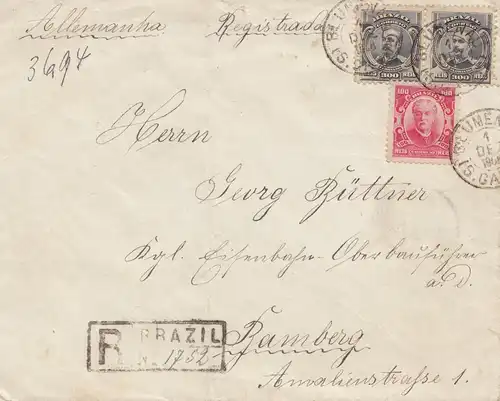 Allemanha Registrada
3694
BRAZIL BRAZIL
300 REIS 300 REIS
100 BRAZIL 100
REIS REIS
BLUMENAU
1
DEZ
(S. CA
Herrn
Georg Büttner
Kgl. Eisenbahn-Oberbauführer
a. D.
Bamberg
Amalienstrasse 1.
R BRAZIL
No 1752